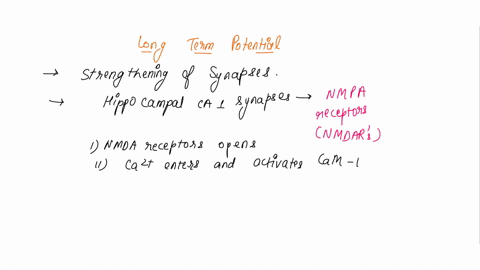 Long Term Potential
→ Strengthening of Synapses.
→ Hippocampal CA1 synapses → NMPA
receptors
(NMDAR's)
i) NMDA receptors opens
ii) Ca2+ enters and activates CaM-1